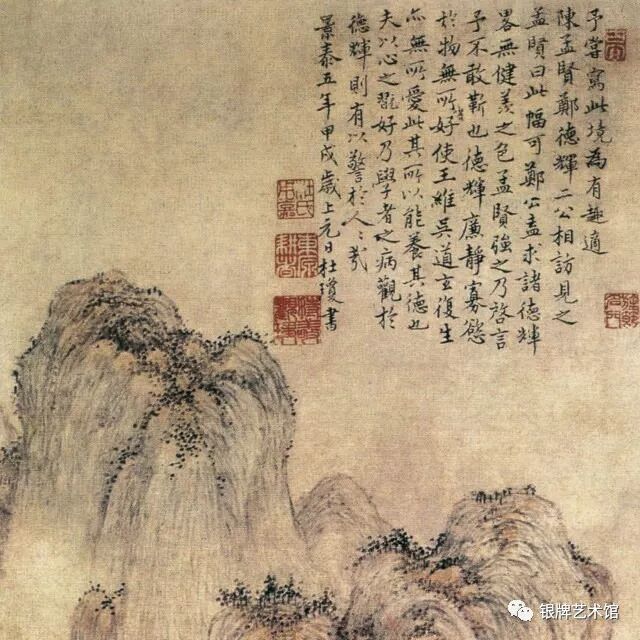 予嘗寫此境為有趣適
陳孟賢鄭德輝二公相訪見之
孟賢曰此幅可鄭公盍求諸德輝
畧無健羨之色孟賢強之乃啟言
予不敢靳也德輝廣靜寡慾
於物無所好使王維吳道玄復生
亦無所愛此其所以能養其德也
夫以心之躭好乃學者之病觀於
德輝則有以警於人〻哉
景泰五年甲戌歲上元日杜瓊書
银牌艺术馆